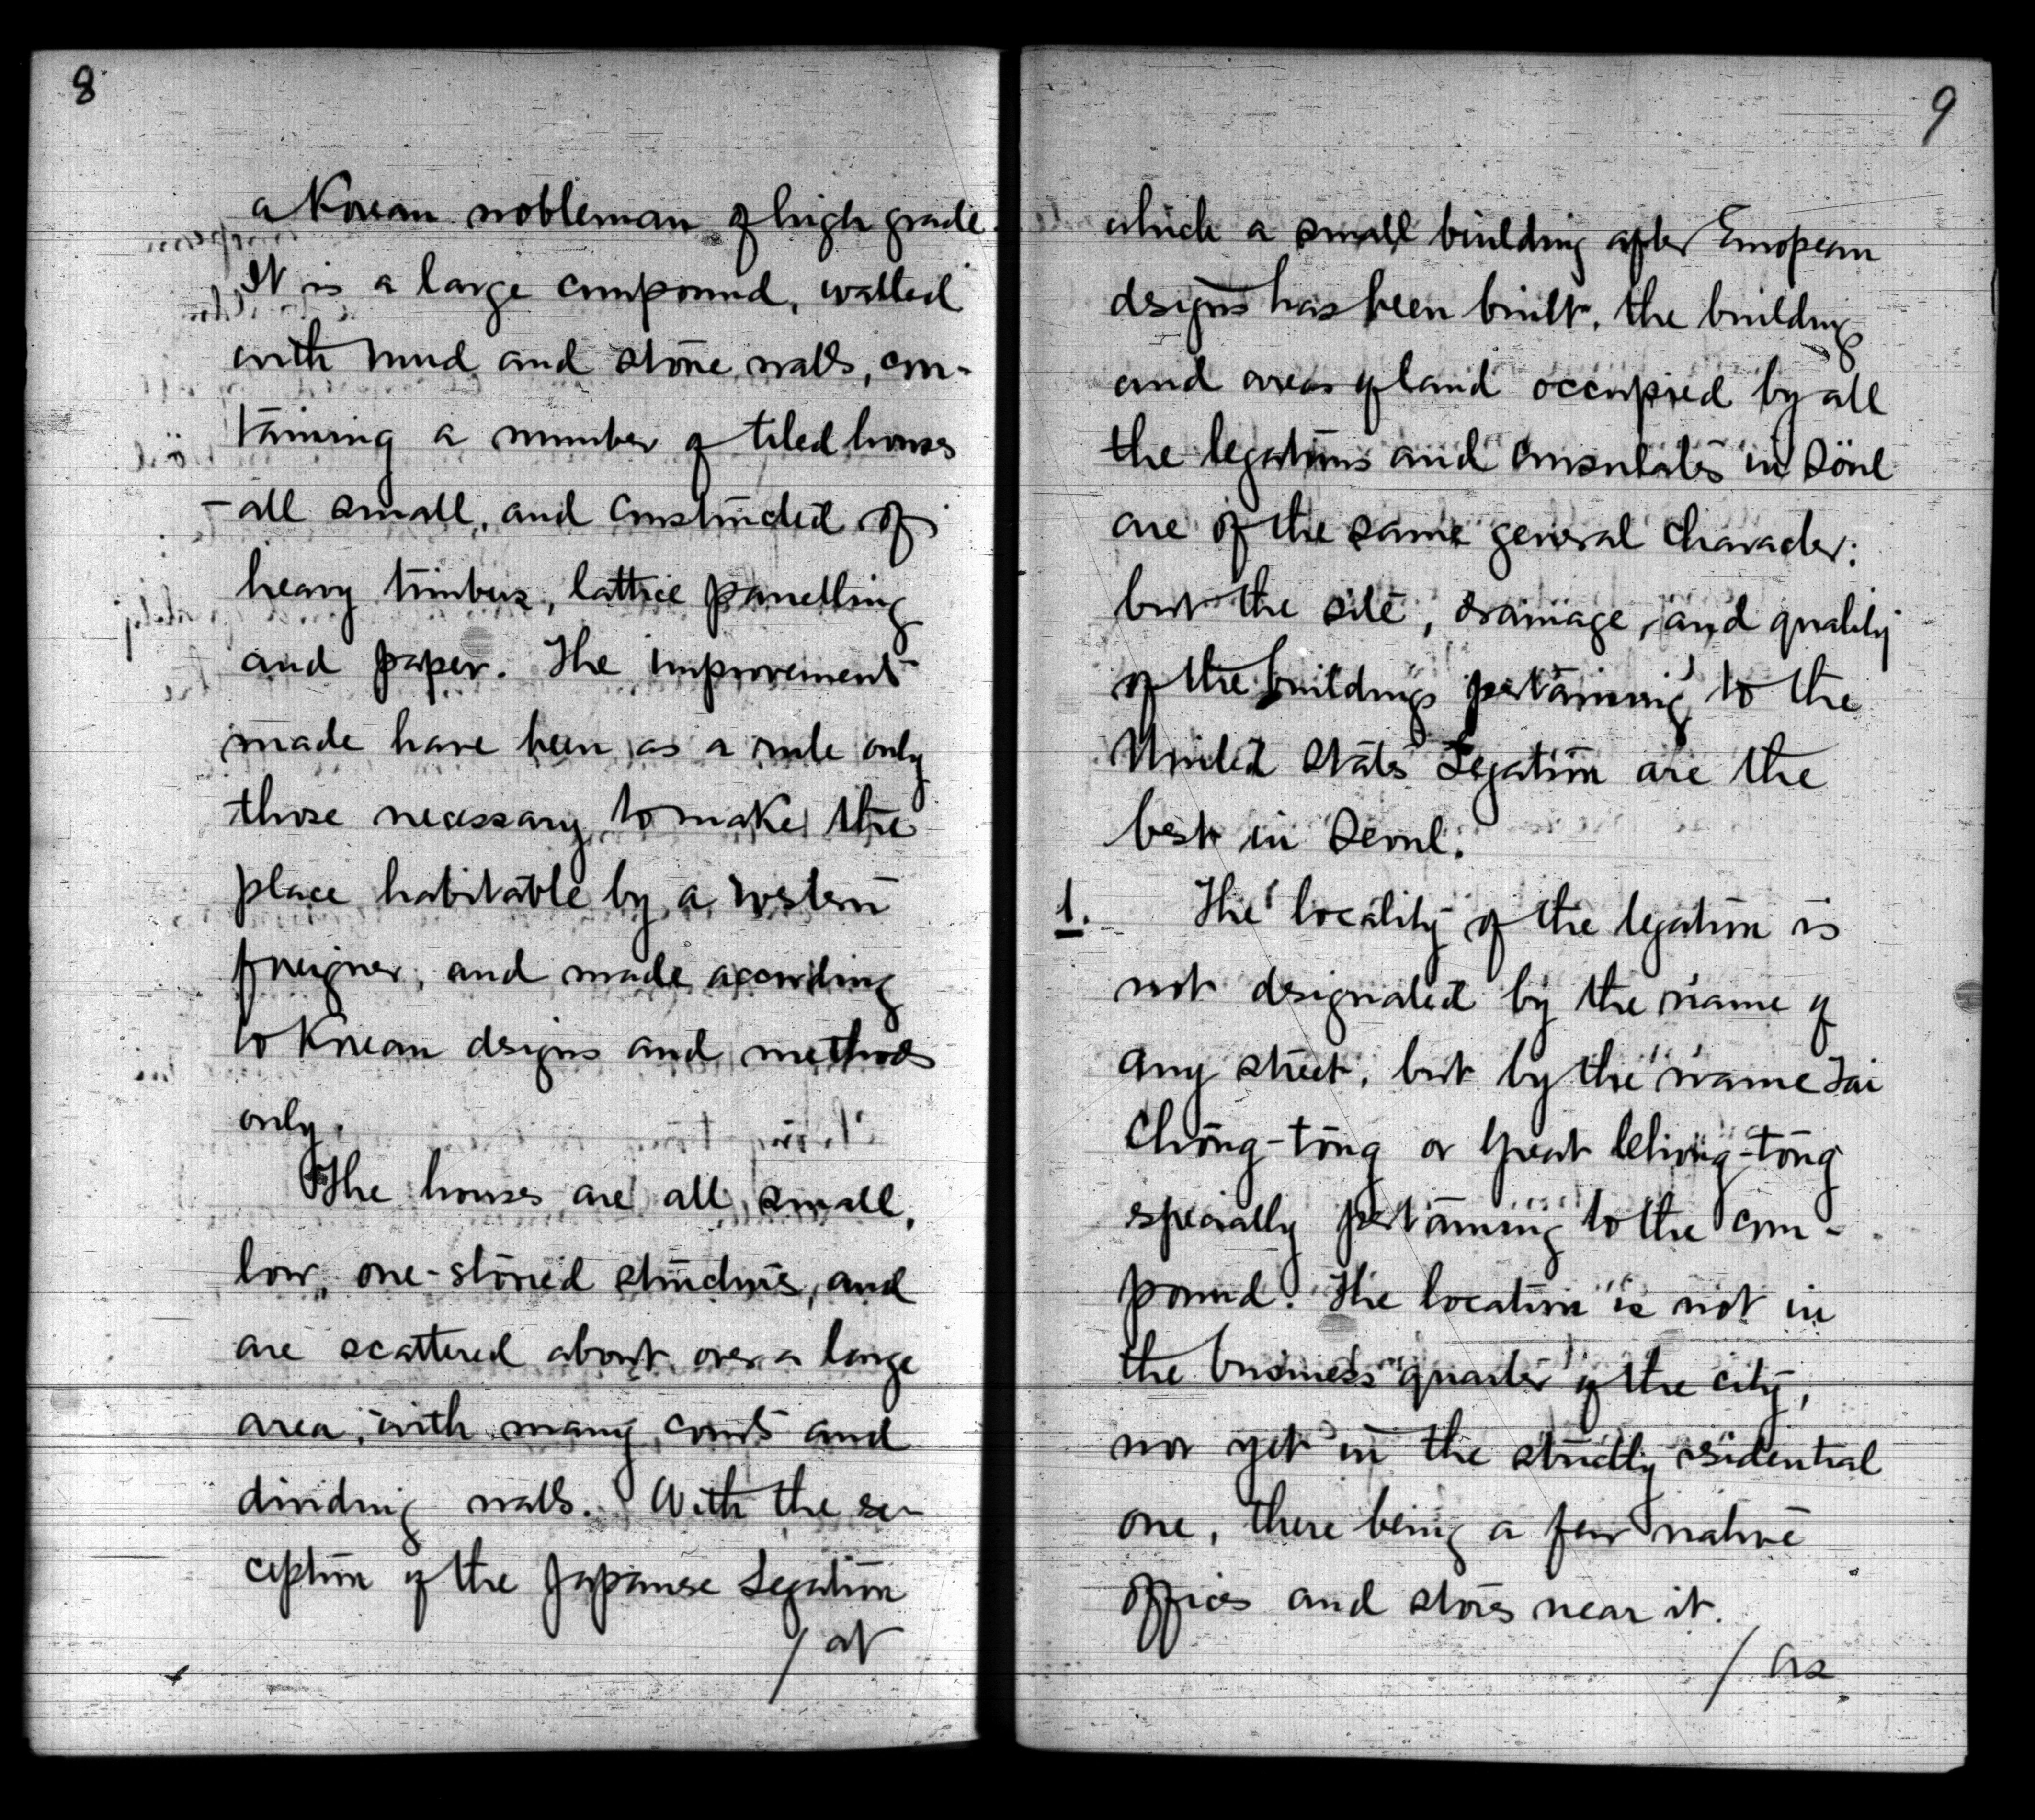 8
a Korean nobleman of high grade.
It is a large compound, walled
with mud and stone walls, con-
taining a number of tiled houses
- all small, and constructed of
heavy timbers, lattice panelling
and paper. The improvements
made have been as a rule only
those necessary to make the
place habitable by a western
foreigner, and made according
to Korean designs and methods
only.
The houses are all small,
low, one-storied structures, and
are scattered about over a large
area, with many courts and
dividing walls. With the ex-
ception of the Japanese Legation
/ at
9
which a small building after European
designs has been built, the buildings
and areas of land occupied by all
the legations and consulates in Söul
are of the same general character:
but the site, drainage, and quality
of the buildings pertaining to the
United States Legation are the
best in Seoul.
1. The locality of the legation is
not designated by the name of
any street, but by the name Tai
Chöng-tong or Great Chöng-tong
especially pertaining to the com-
pound. The location is not in
the business quarter of the city,
nor yet in the strictly residential
one, there being a few native
offices and stores near it.
/ As